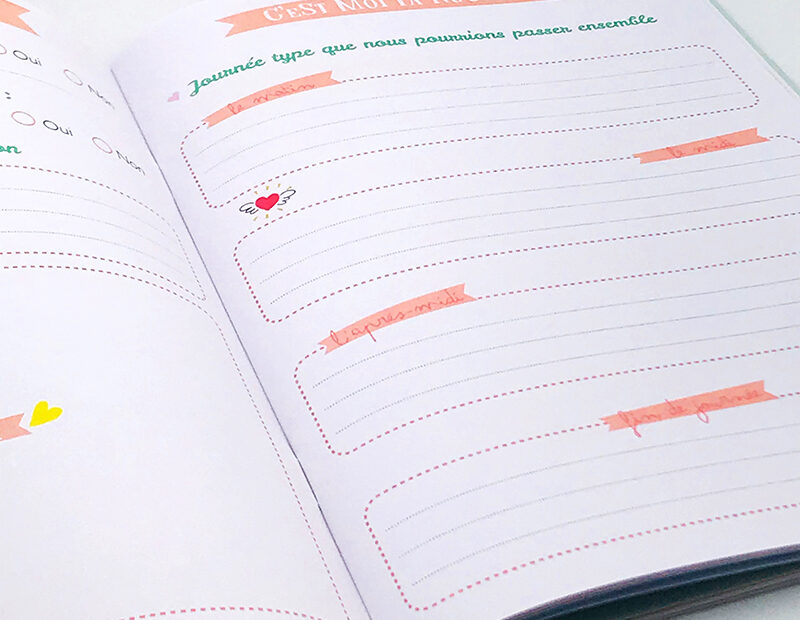 Oui
Non
:
Oui
Non
on
C'EST MOI LA
Journée type que nous pourrions passer ensemble
le matin
le midi
l'après-midi
fin de journée